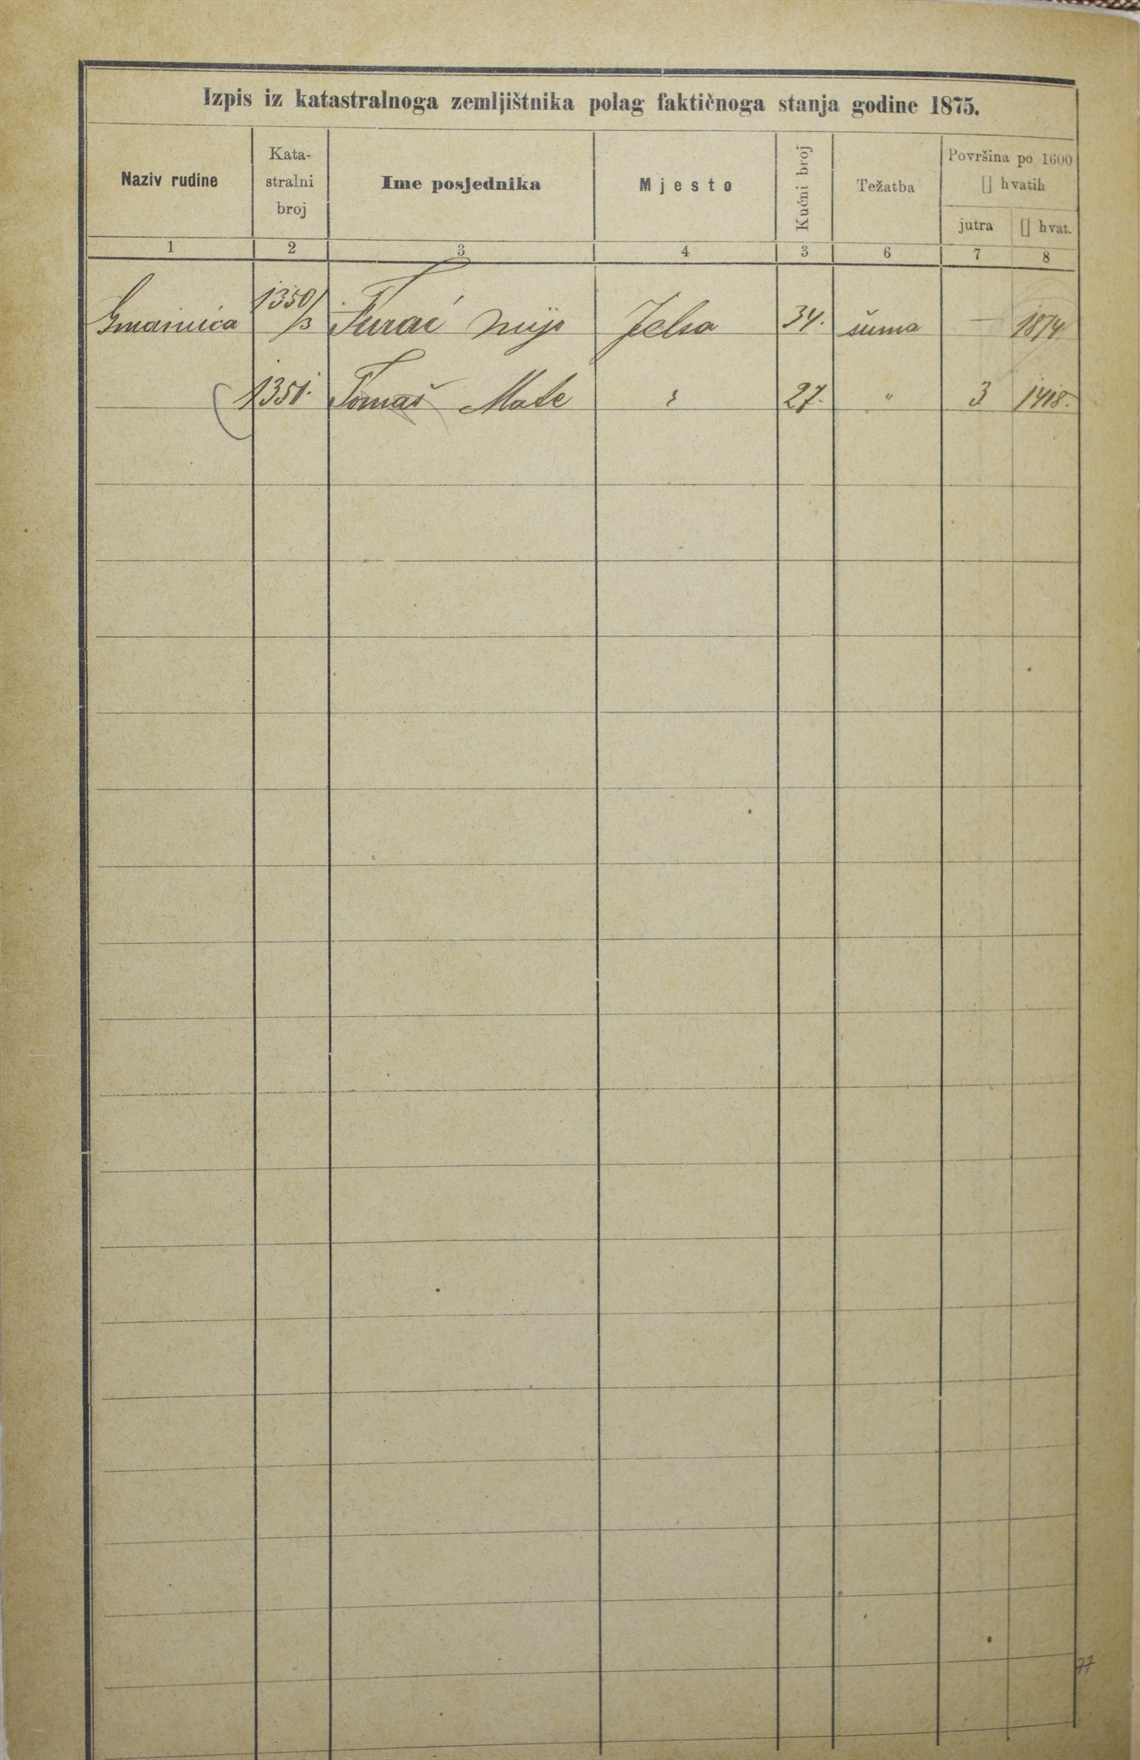 Izpis iz katastralnoga zemljištnika polag faktičnoga stanja godine 1875.
Naziv rudine
Kata-
stralni
broj
Ime posjednika
Mjesto
Kućni broj
Težatba
Površina po 1600
▯ hvatih
jutra ▯ hvat.
1 2 3 4 3 6 7 8
1350/
/3 Mijo Jelsa 34. šuma — 1874
1351. Tomaš Mate " 27. " 3 1418.
77